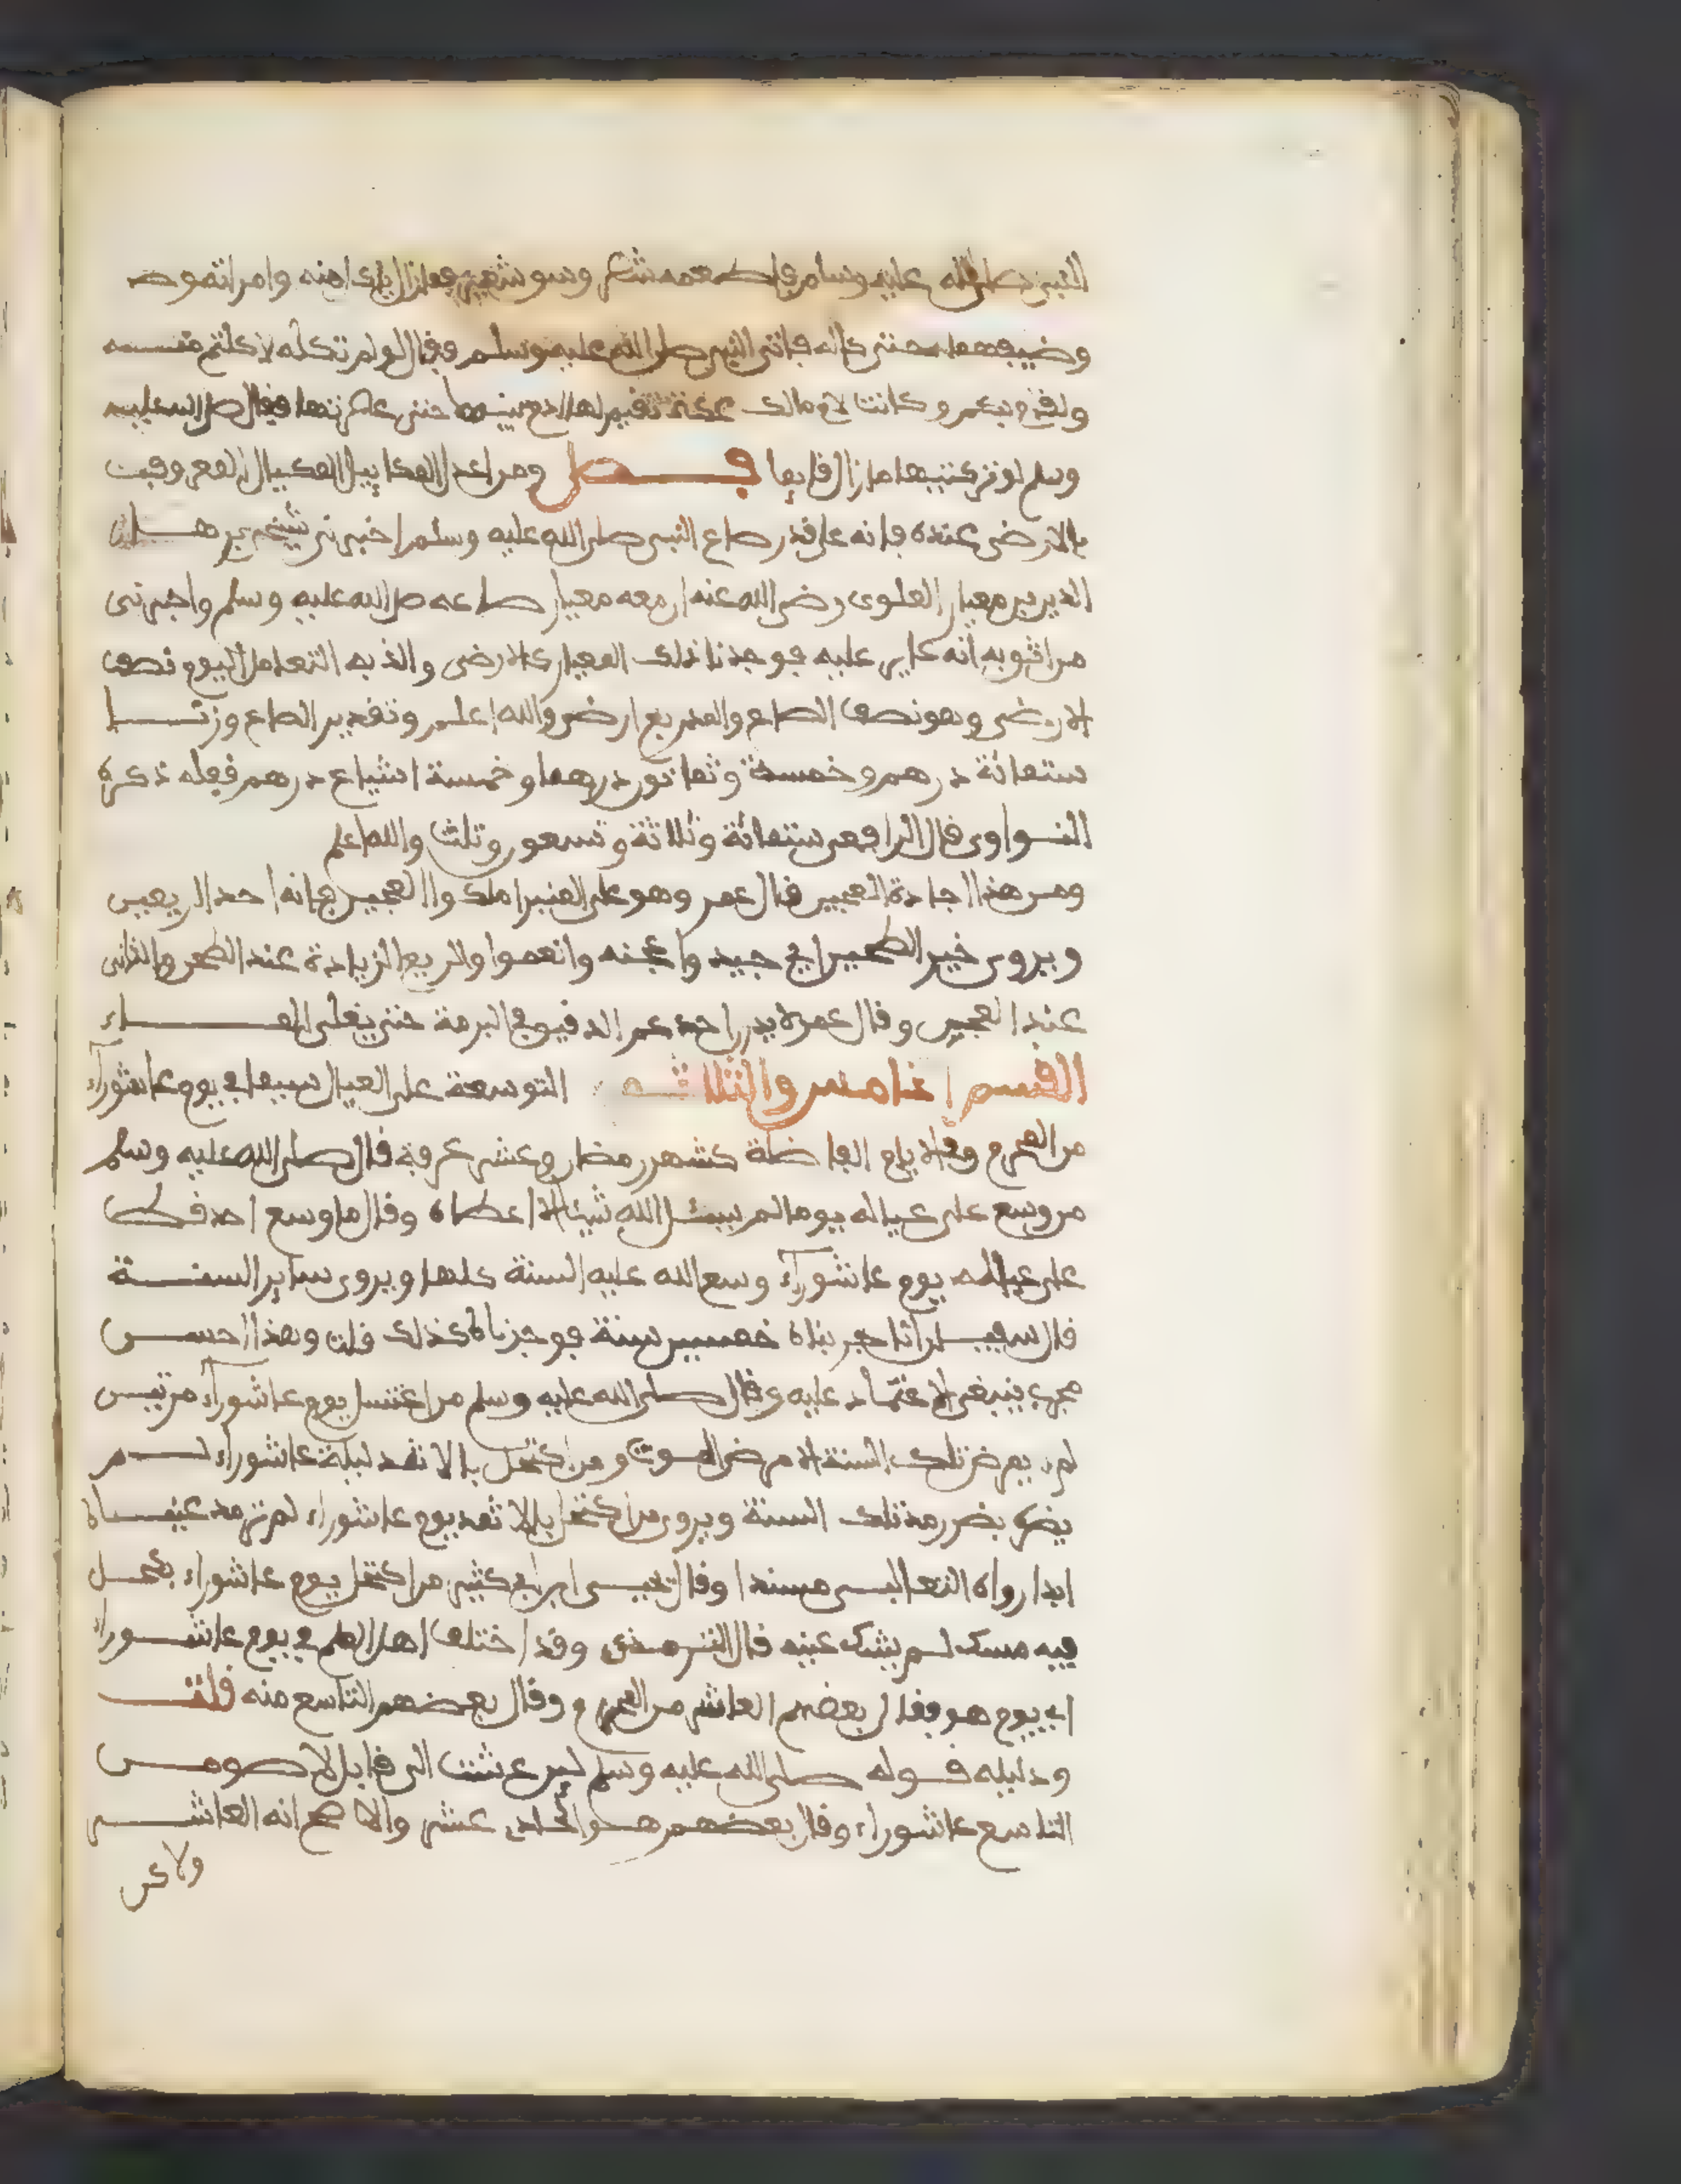 النبي صلى الله عليه وسلم فاطعمه شطر وسق شعير فما زال ياكل منه وامراته وص
وضيفهما حتى كاله فاتى النبي صلى الله عليه وسلم فقال لو لم تكله لاكلتم منه
ولقام بكم وكانت لام مالك عكة تقيم لها ادم بيتها حتى عصرتها فقال صلى الله عليه
وسلم لو تركتيها ما زال قايما فصل ومن اعدل المكاييل المكيال المعروف
بالارضي عنده فانه على قدر صاع النبي صلى الله عليه وسلم اخبرني شيخي برهان
الدين بن معيار العلوي رضي الله عنه ان معه معيار صاعه صلى الله عليه وسلم واخبرني
من اثق به انه عاير عليه فوجدنا ذلك المعيار كالارضي والذي به التعامل اليوم نصف
الارضي وهو نصف الصاع والمد ربع ارضي والله اعلم وتقدير الصاع وزنا
ستمائة درهم وخمسة وثمانون درهما وخمسة اسباع درهم فعله ذكره
النواوي قال الرافعي ستمائة وثلاثة وتسعون وثلث والله اعلم
ومن هذا اجادة العجين قال عمر وهو على المنبر املكوا العجين فانه احد الريعين
ويروى خير الطحين اي جيد واعجنه وانعموا والريع الزيادة عند الطحن والثاني
عند العجين وقال عمر لا يذرن احدكم الدقيق في البرمة حتى يغلي الماء
القسم الخامس والثلاثه التوسعة على العيال سيما في يوم عاشوراء
من المحرم وفي الايام الفاضلة كشهر رمضان وعشر عرفة قال صلى الله عليه وسلم
من وسع على عياله يوما لم يسئل الله شيئا الا اعطاه وقال ما وسع احد قط
على عياله يوم عاشوراء وسع الله عليه السنة كلها ويروى ساير السنة
قال سفيان انا جربناه خمسين سنة فوجدناه كذلك قلت وهذا احسن
مجرى ينبغي الاعتماد عليه وقال صلى الله عليه وسلم من اغتسل يوم عاشوراء مرتين
لم يمرض تلك السنة الا مرض الموت ومن اكتحل بالاثمد ليلة عاشوراء لم
يضره بضر رمد تلك السنة ويروى من اكتحل بالاثمد يوم عاشوراء لم ترمد عيناه
ابدا رواه الثعالبي مسندا وقال يحيى ابن ابي كثير من اكتحل يوم عاشوراء بكحل
فيه مسك لم يشك عينه قال الترمذي وقد اختلف اهل العلم في يوم عاشوراء
اي يوم هو فقال بعضهم العاشر من المحرم وقال بعضهم التاسع منه قلت
ودليله قوله صلى الله عليه وسلم لين عشت الى قابل لاصومن
التاسع عاشوراء وقال بعضهم هو الحادي عشر والاصح انه العاشر
ولاكن